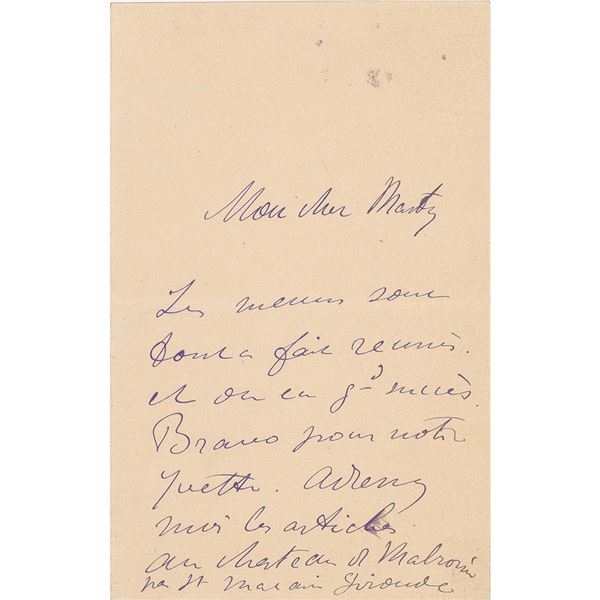 Mon cher Marty
Les menus sont
tout a fait reussis.
et on eu gd succès.
Bravo pour notre
Yvette. Adressez
moi les articles
au chateau de Malromé
par St Macaire Gironde